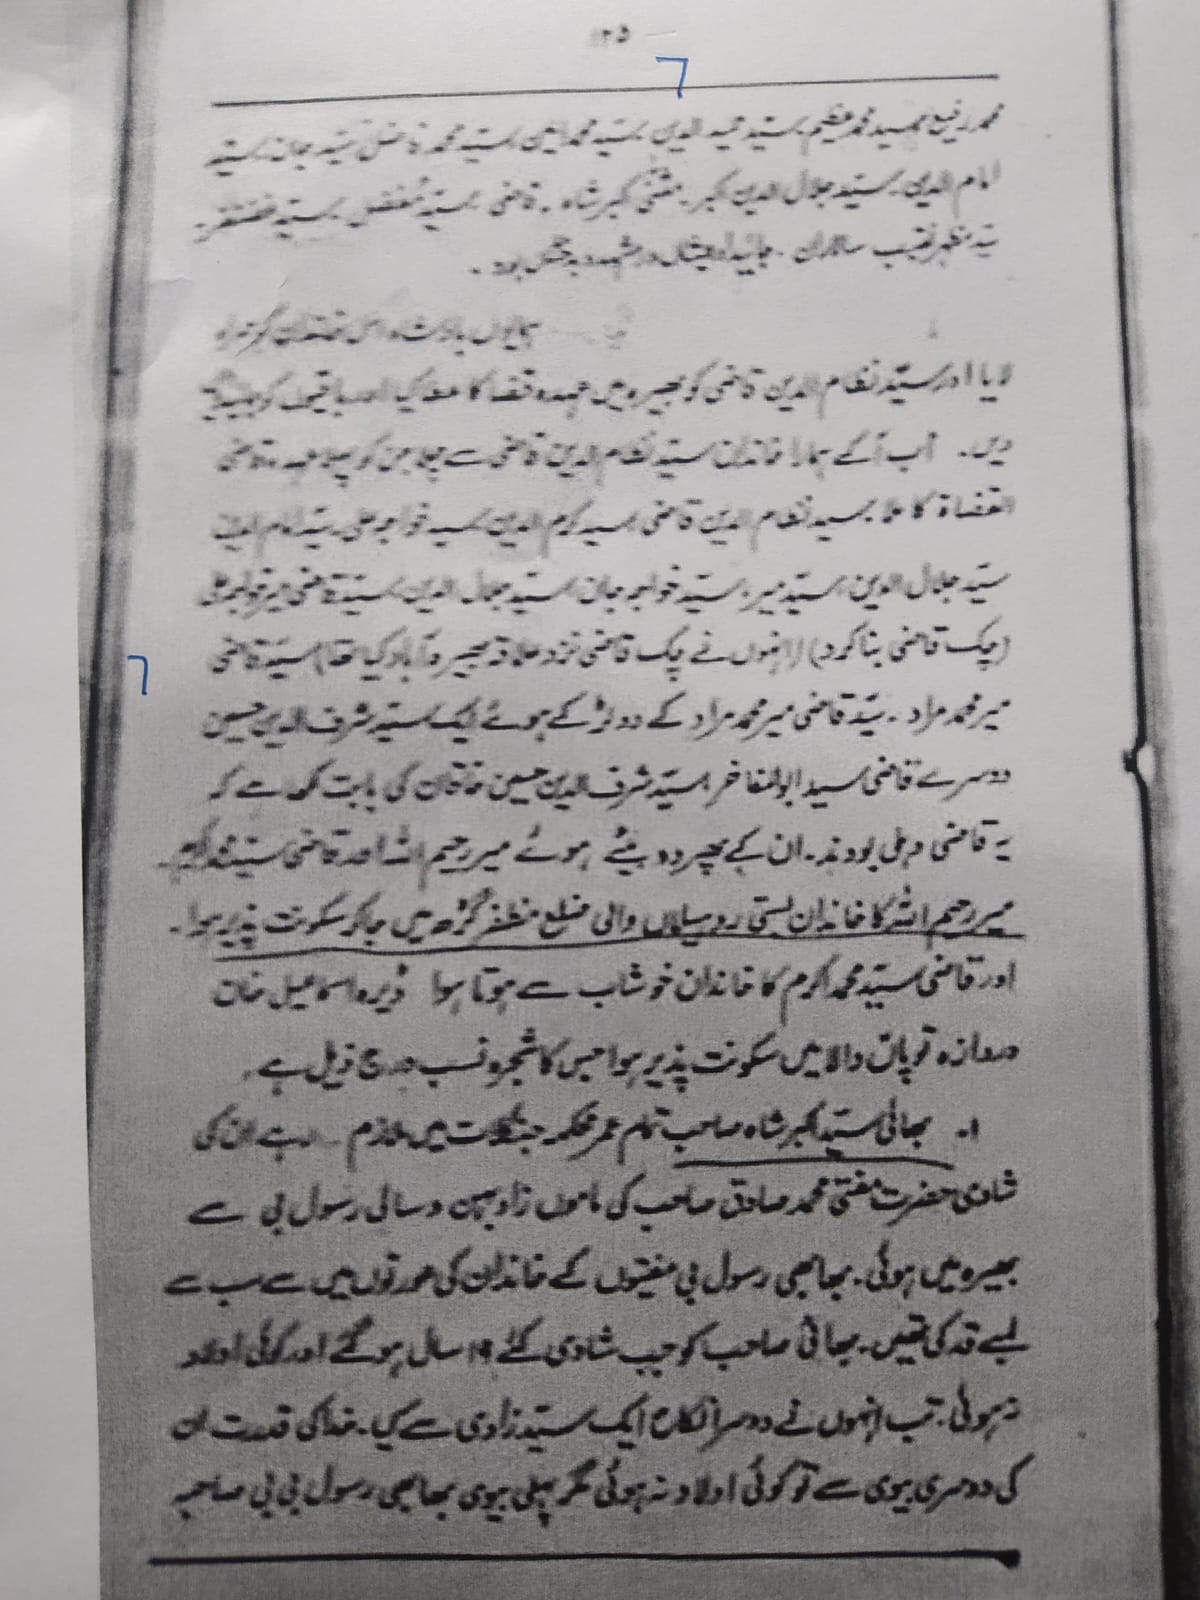 ۲۵
محمد رفیع سید محمد عظیم سید حمید الدین سید محمد امین سید محمد فاضل سید جان سید
امام الدین سید جلال الدین اکبر مفتی اکبر شاہ ۔ قاضی سید مفضل سید غضنفر
سید مظہر نقیب سالاران ۔ در بود ۔
ہمایوں بادشاہ اس خاندان کو ہمراہ
لایا اور سید نظام الدین قاضی کو بھیرہ میں عہدہ قضا کا عطا کیا اور باقیوں کو
دیں ۔ اب آگے ہمارا خاندان سید نظام الدین قاضی سے چلا جن کو پہلا عہدہ قاضی
القضاۃ کا ملا سید نظام الدین قاضی سید کرم الدین سید خواجہ علی ۔ سید امام الدین
سید جلال الدین سید میر ، سید خواجہ جان سید جمال الدین سید قاضی میر خواجہ علی
(چک قاضی بنا کرد) (انہوں نے چک قاضی نزد علاقہ بھیرہ آباد کیا تھا) سید قاضی
میر محمد مراد ۔ سید قاضی میر محمد مراد کے دو لڑکے ہوئے ایک سید شرف الدین حسین
دوسرے قاضی سید ابوالمفاخر سید شرف الدین حسین خاقان کی بابت لکھا ہے کہ
یہ قاضی دہلی بودند ۔ ان کے پھر دو بیٹے ہوئے میر رحیم اللہ اور قاضی سید محمد اکرم
میر رحیم اللہ کا خاندان بستی روسیلاں والی ضلع مظفر گڑھ میں جا کر سکونت پذیر ہوا ۔
اور قاضی سید محمد اکرم کا خاندان خوشاب سے ہوتا ہوا ڈیرہ اسماعیل خان
دروازہ توپاں والا میں سکونت پذیر ہوا جس کا شجرہ نسب درج ذیل ہے ۔
۱۔ بھائی سید اکبر شاہ صاحب تمام عمر محکمہ جنگلات میں ملازم رہے ان کی
شادی حضرت مفتی محمد صادق صاحب کی ماموں زاد بہن و سالی رسول بی سے
بھیرہ میں ہوئی ۔ بھابھی رسول بی مفتیوں کے خاندان کی عورتوں میں سے سب سے
لمبے قد کی تھیں ۔ بھائی صاحب کو جب شادی کئے سال ہو گئے اور کوئی اولاد
نہ ہوئی ۔ تب انہوں نے دوسرا نکاح ایک سید زادی سے کیا ۔ خدا کی قدرت ان
کی دوسری بیوی سے تو کوئی اولاد نہ ہوئی مگر پہلی بیوی بھابھی رسول بی بی صاحبہ